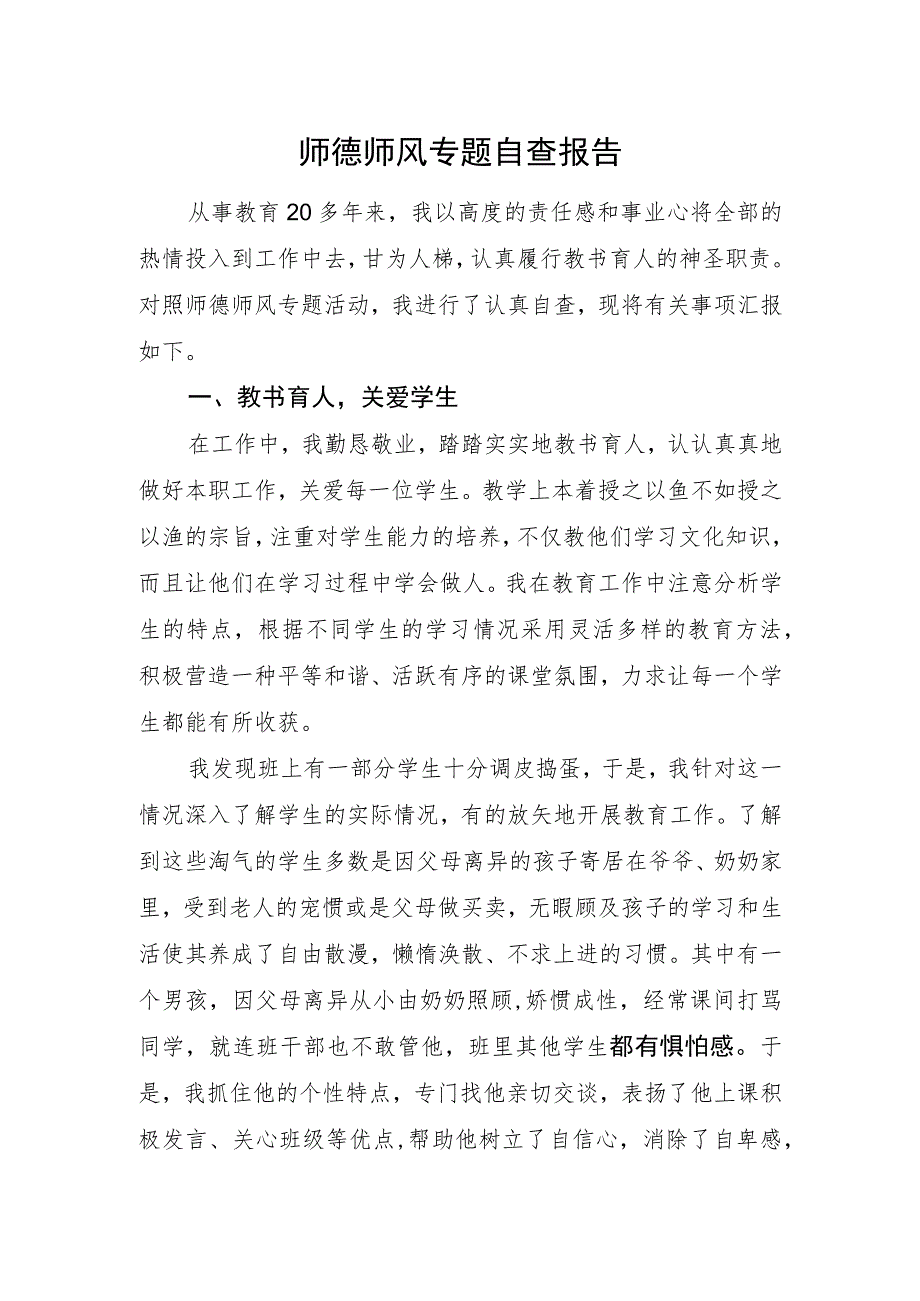 师德师风专题自查报告
从事教育 20 多年来，我以高度的责任感和事业心将全部的
热情投入到工作中去，甘为人梯，认真履行教书育人的神圣职责。
对照师德师风专题活动，我进行了认真自查，现将有关事项汇报
如下。
一、教书育人，关爱学生
在工作中，我勤恳敬业，踏踏实实地教书育人，认认真真地
做好本职工作，关爱每一位学生。教学上本着授之以鱼不如授之
以渔的宗旨，注重对学生能力的培养，不仅教他们学习文化知识，
而且让他们在学习过程中学会做人。我在教育工作中注意分析学
生的特点，根据不同学生的学习情况采用灵活多样的教育方法，
积极营造一种平等和谐、活跃有序的课堂氛围，力求让每一个学
生都能有所收获。
我发现班上有一部分学生十分调皮捣蛋，于是，我针对这一
情况深入了解学生的实际情况，有的放矢地开展教育工作。了解
到这些淘气的学生多数是因父母离异的孩子寄居在爷爷、奶奶家
里，受到老人的宠惯或是父母做买卖，无暇顾及孩子的学习和生
活使其养成了自由散漫，懒惰涣散、不求上进的习惯。其中有一
个男孩，因父母离异从小由奶奶照顾,娇惯成性，经常课间打骂
同学，就连班干部也不敢管他，班里其他学生都有惧怕感。于
是，我抓住他的个性特点，专门找他亲切交谈，表扬了他上课积
极发言、关心班级等优点,帮助他树立了自信心，消除了自卑感，